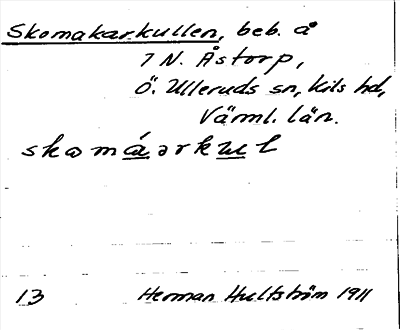 Skomakarkullen, beb. å
7 N. Åstorp,
Ö. Ulleruds sn, Kils hd,
Värml. län.
skomáərkul
13 Herman Hultström 1911